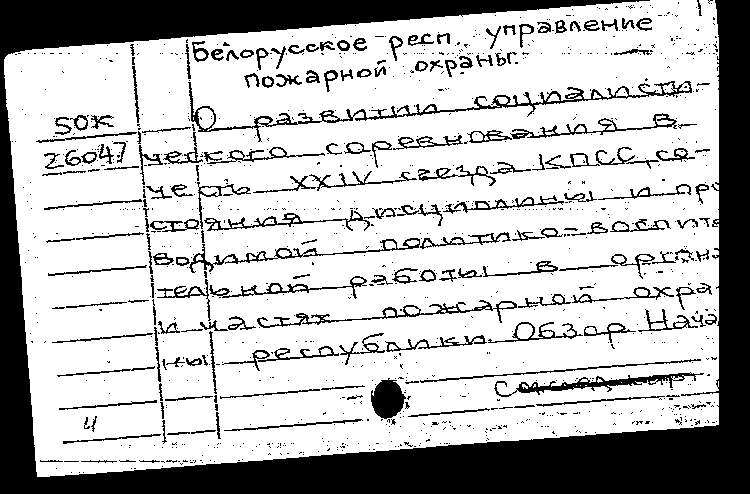 Белорусское респ. управление
пожарной охраны.
50к
26047
О развитии социалисти-
ческого соревнования в
честь XXIV съезда КПСС, со-
стояния дисциплины и про
водимой политико-воспита
тельной работы в органа
и частях пожарной охра-
ны республики. Обзор. Нача
4